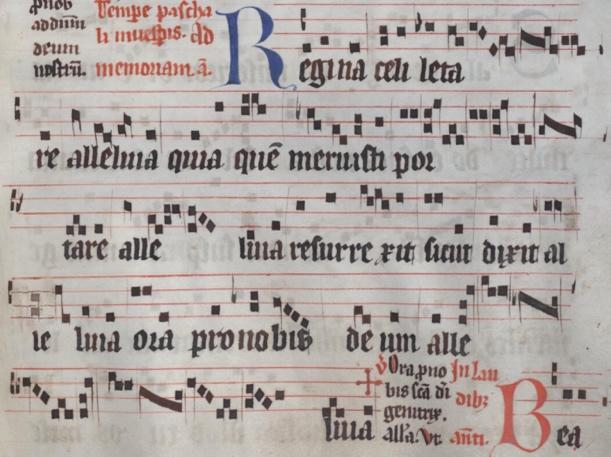 ad dnm̄
deum
nostrū.
Tempe pascha
li in uesp̄is. Ad
memoriam. a.
Regina celi leta
re alleluia quia quē meruisti por
tare alle luia resurre xit sicut dixit al
le luia ora pro nobis de um alle
luia
v Ora pro no
bis scā dī
genitrix.
all'a. Vt
In lau
dib;
anti.
Bea